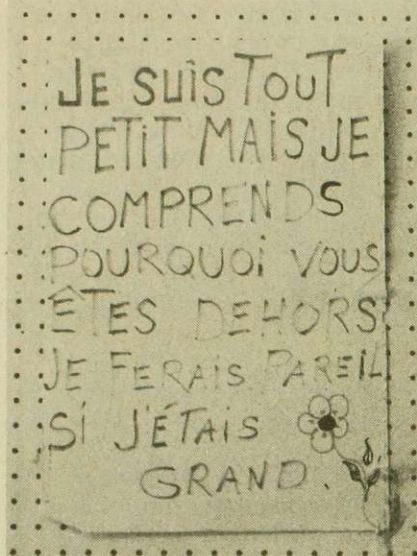 JE SUIS TOUT
PETIT MAIS JE
COMPRENDS
POURQUOI VOUS
ÊTES DEHORS
JE FERAIS PAREIL
SI J'ÉTAIS
GRAND.